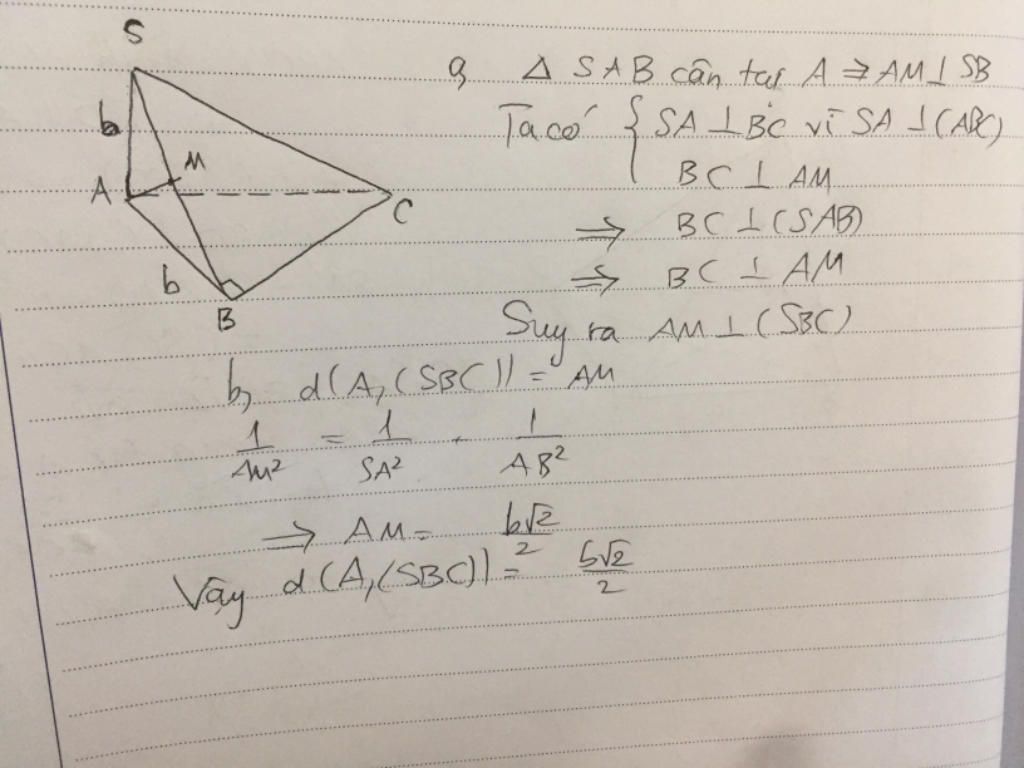 S
b
M
A
C
b
B
a, Δ SAB cân tại A ⇒ AM ⊥ SB
Ta có { SA ⊥ BC vì SA ⊥ (ABC)
BC ⊥ AM
⇒ BC ⊥ (SAB)
⇒ BC ⊥ AM
Suy ra AM ⊥ (SBC)
b, d(A,(SBC)) = AM
1/AM² = 1/SA² - 1/AB²
⇒ AM = b√2/2
Vậy d(A,(SBC)) = b√2/2